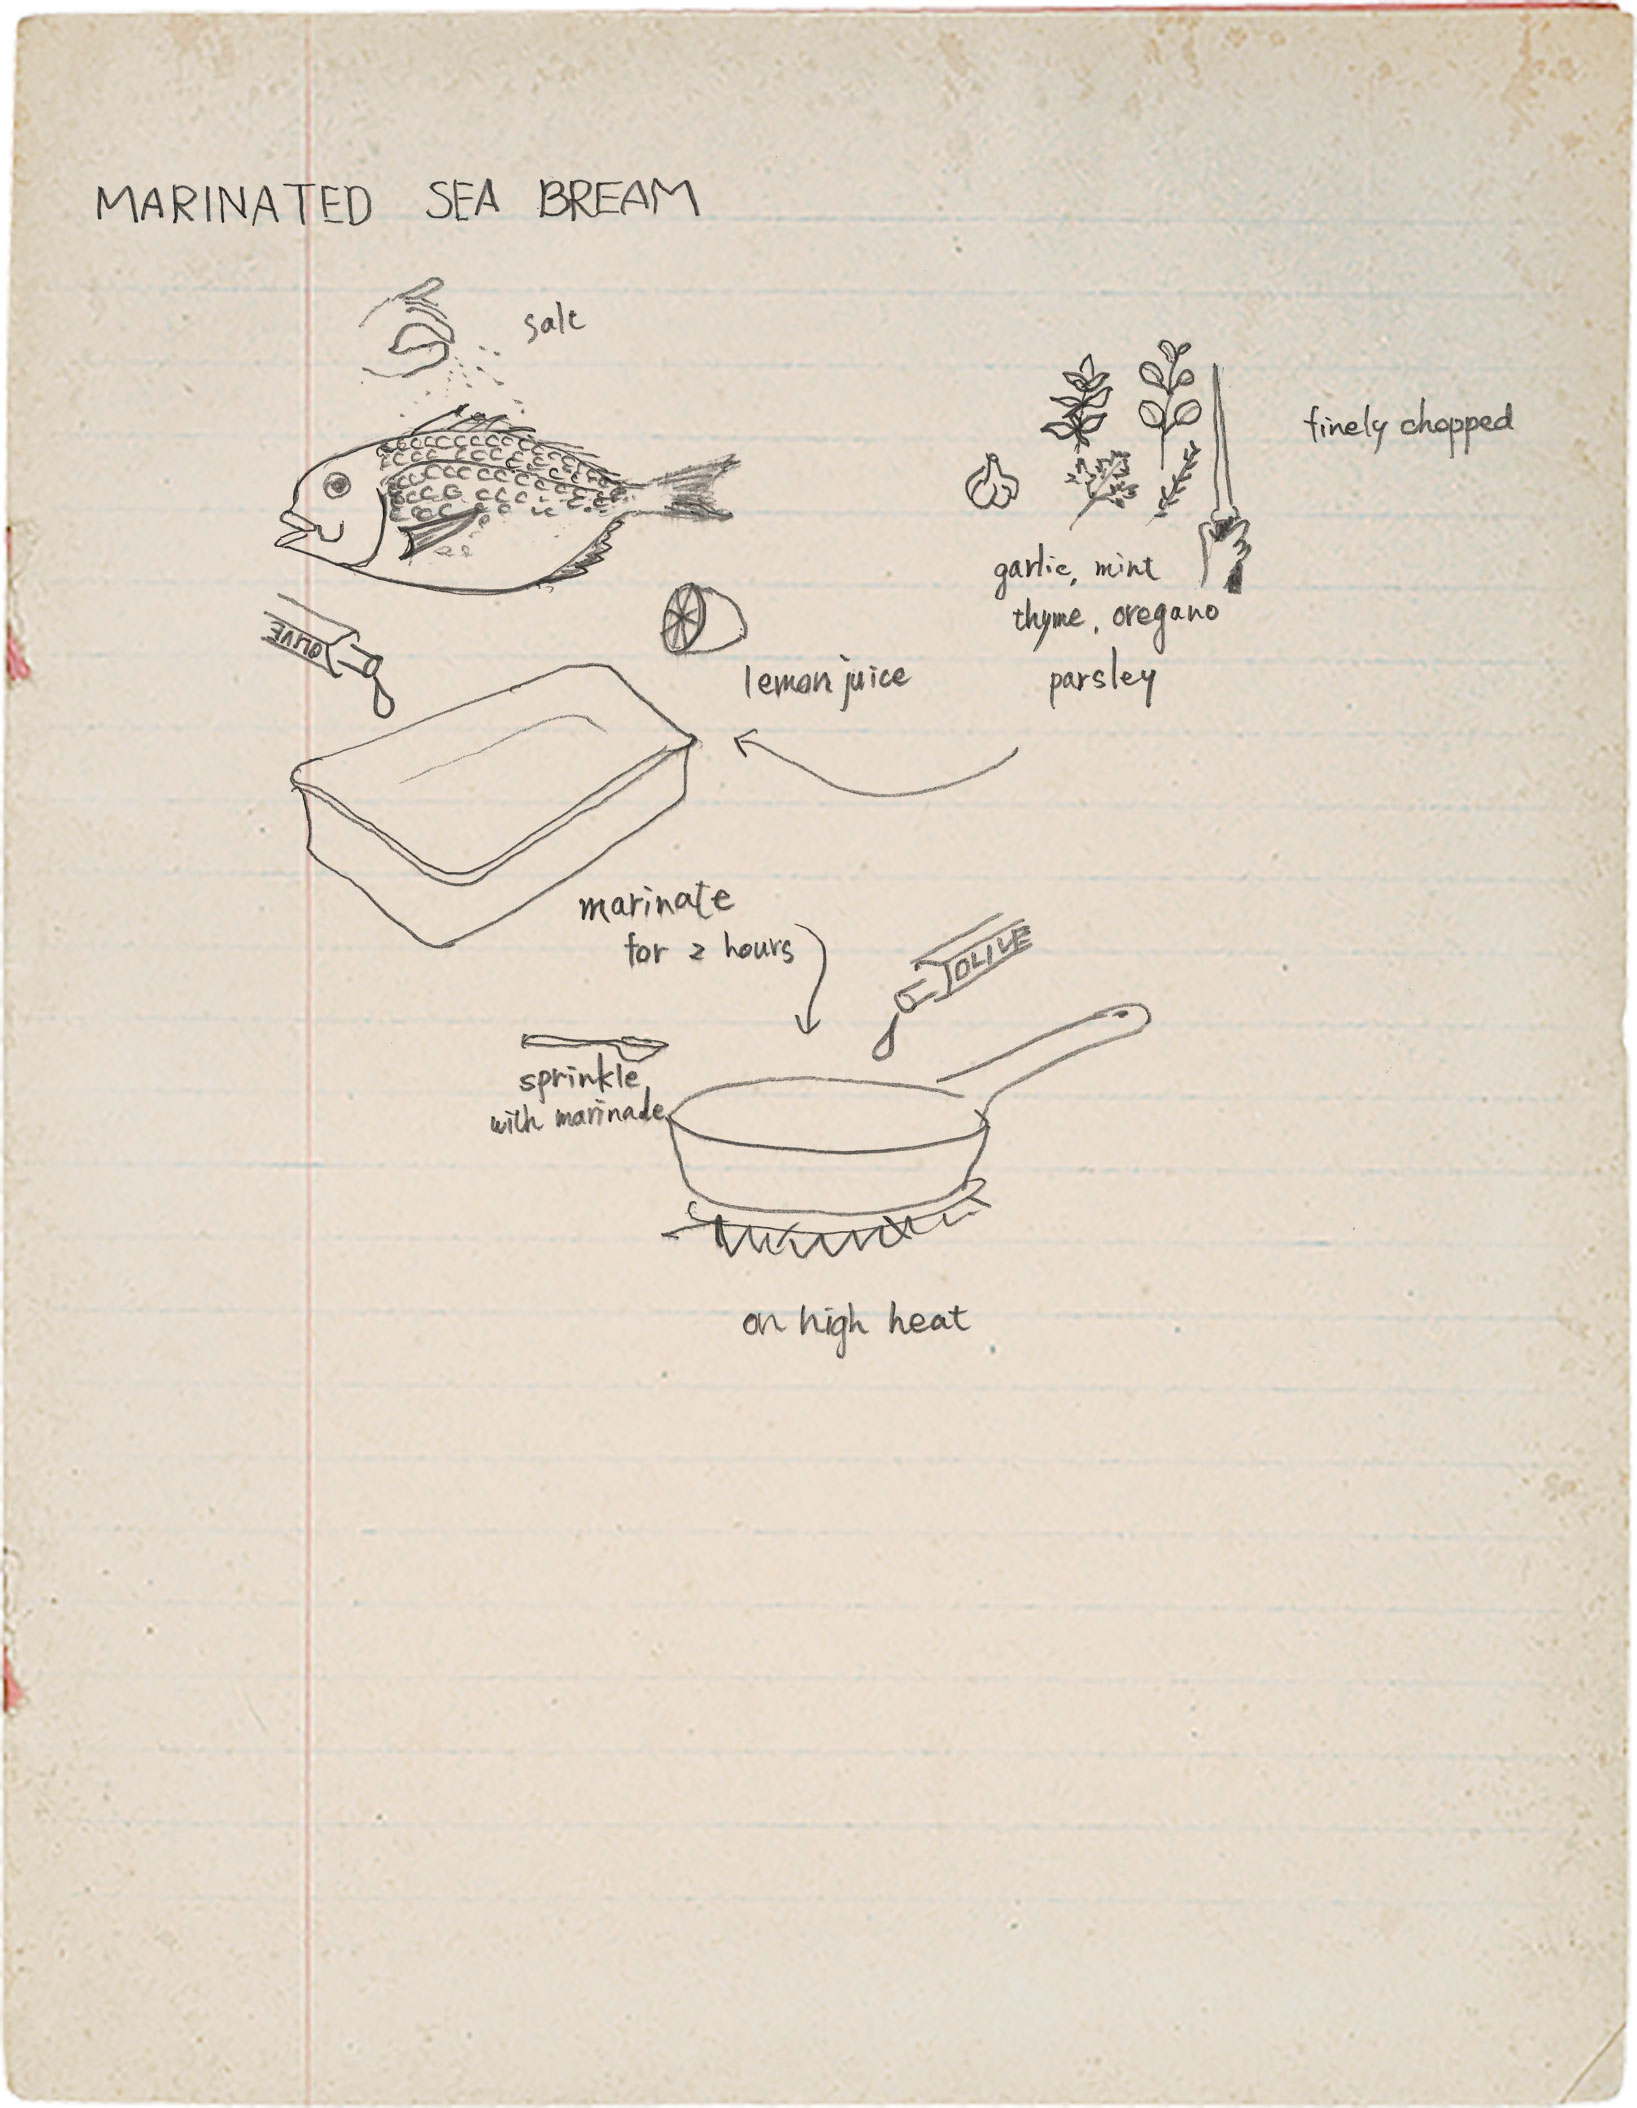 MARINATED SEA BREAM
salt
finely chopped
garlic, mint
thyme, oregano
parsley
OLIVE
lemon juice
marinate
for 2 hours
OLIVE
sprinkle
with marinade
on high heat